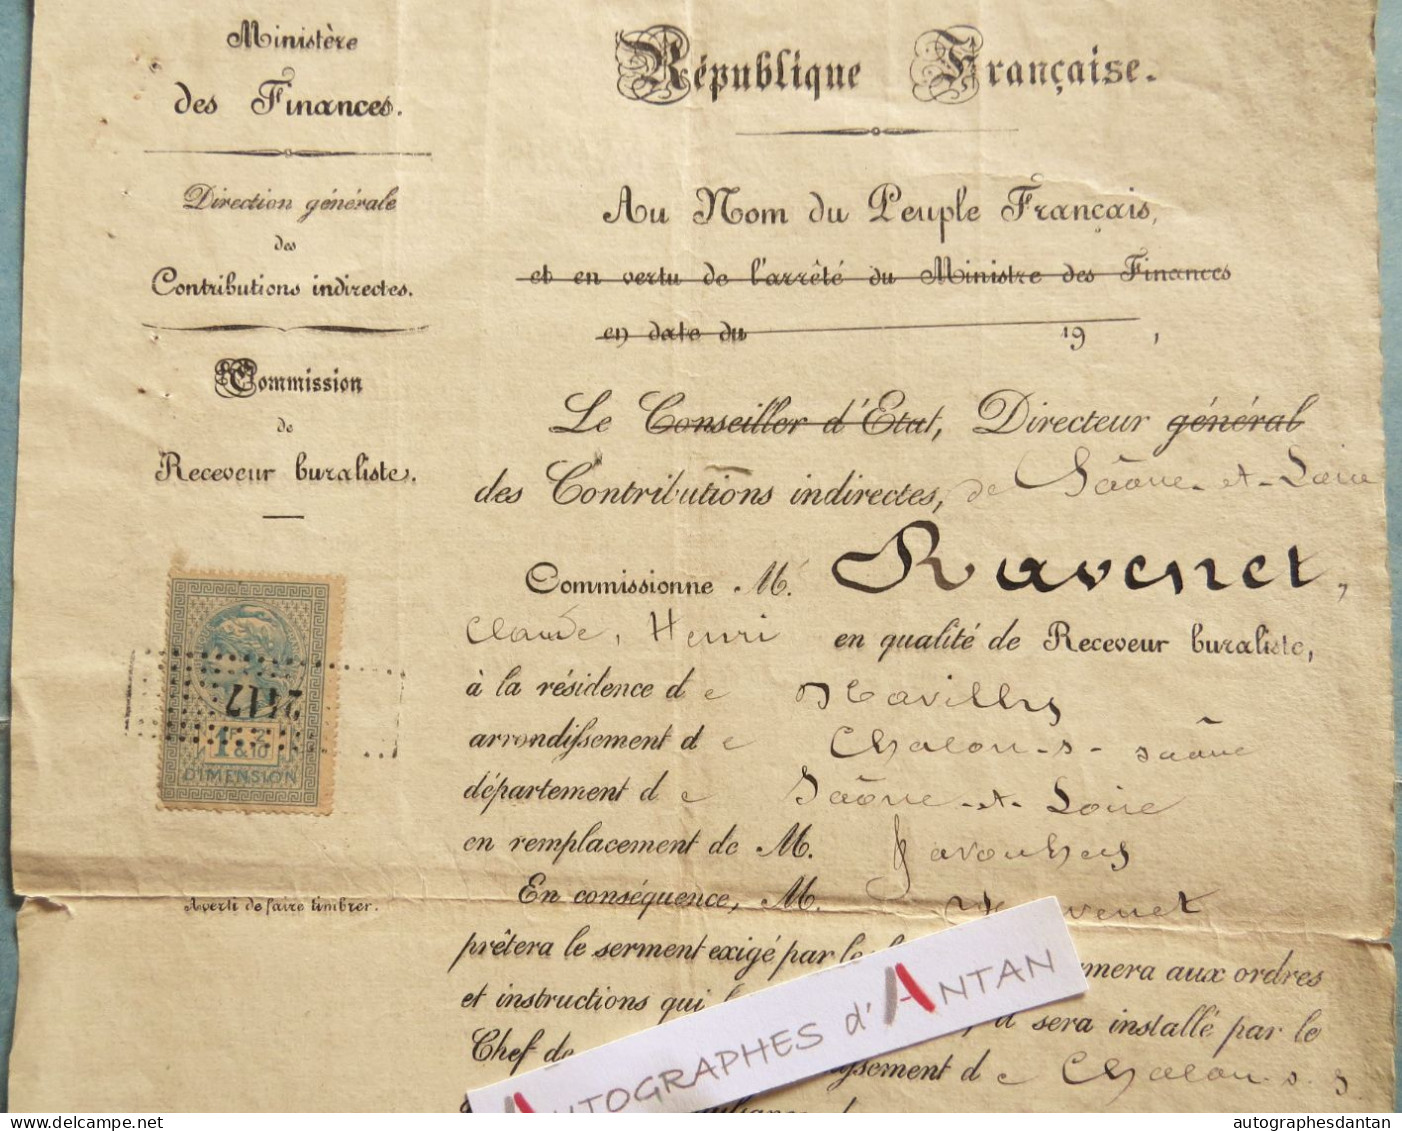 Ministère
des Finances.
Direction générale
des
Contributions indirectes.
Commission
de
Receveur buraliste.
2117
1F 2/10
&
DIMENSION
Averti de faire timbrer.
République Française.
Au Nom du Peuple Français,
et en vertu de l'arrêté du Ministre des Finances
en date du 19 ,
Le Conseiller d'Etat, Directeur général
des Contributions indirectes, de Saône-et-Loire
Commissionne M. Ravenet,
Claude, Henri en qualité de Receveur buraliste,
à la résidence de
arrondissement de Chalon-s-Saône
département de Saône-et-Loire
en remplacement de M.
En conséquence, M. Ravenet
prêtera le serment exigé par le rmera aux ordres
et instructions qui l , il sera installé par le
Chef de issement de Chalon-s-S
AUTOGRAPHES d'ANTAN
autographesdantan